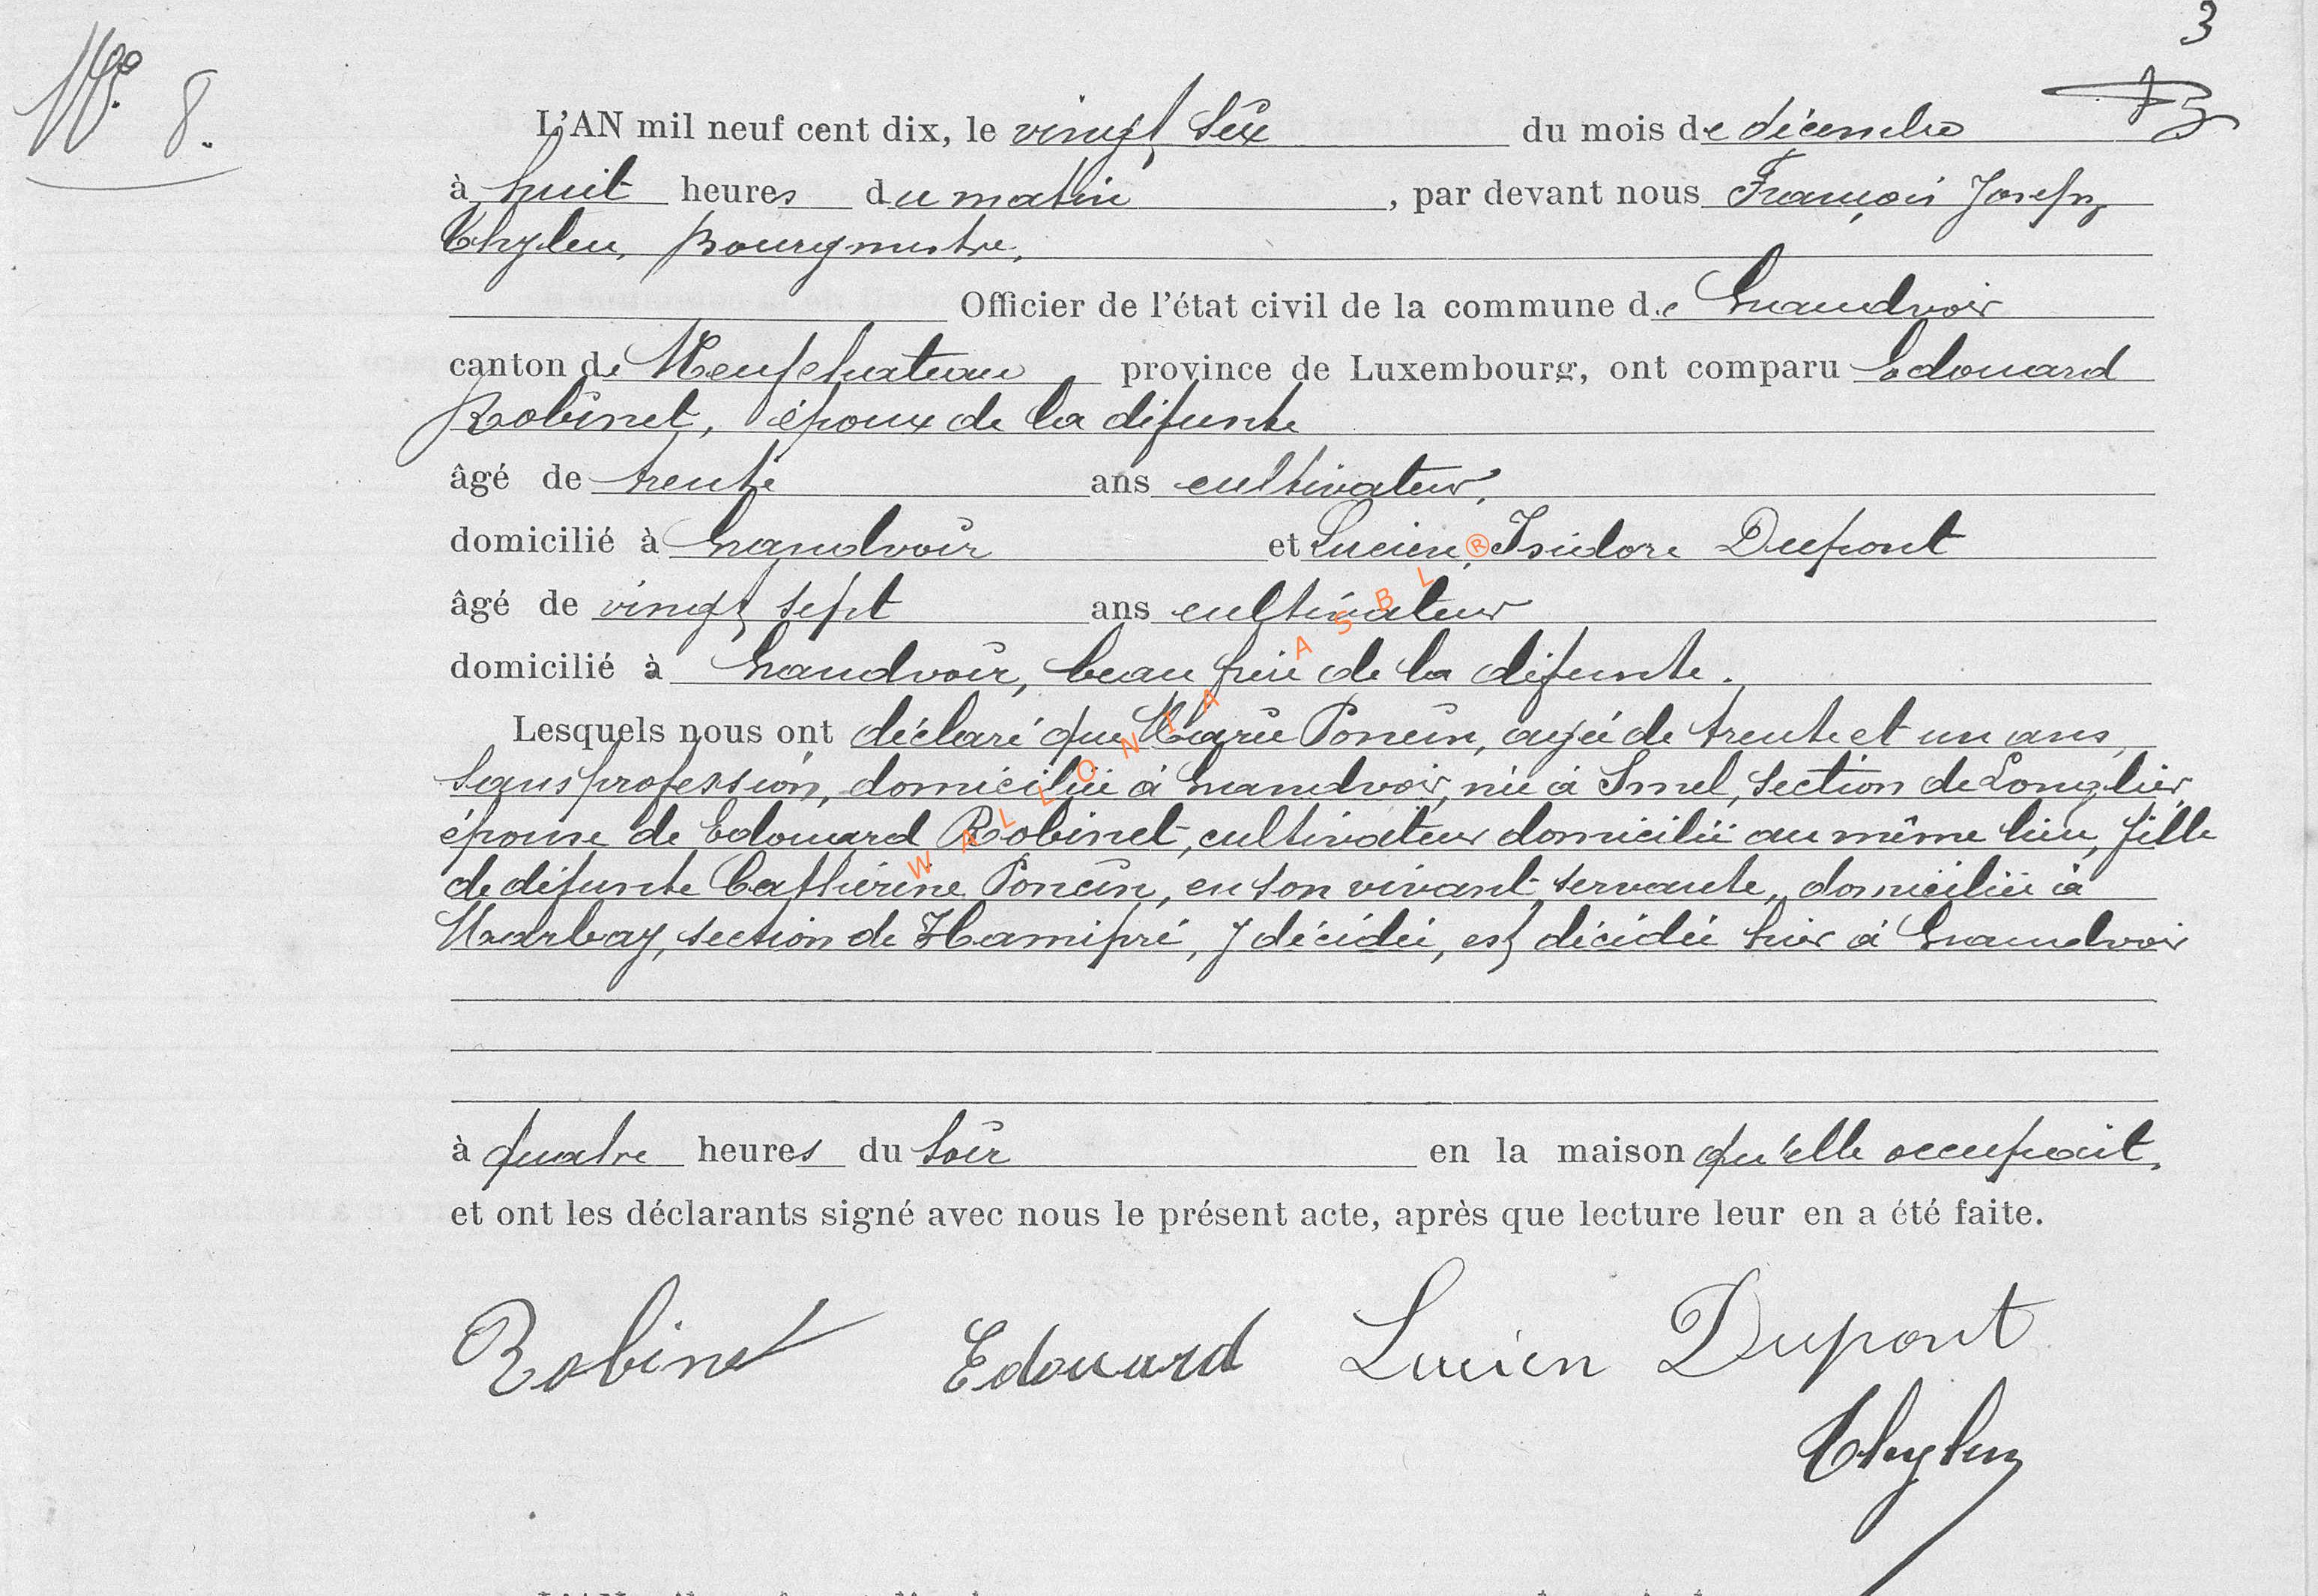 3
N° 8.
L'AN mil neuf cent dix, le vingt six du mois de décembre
à huit heures du matin, par devant nous François Joseph
Thylen, Bourgmestre,
Officier de l'état civil de la commune de Grandvoir
canton de Neufchateau province de Luxembourg, ont comparu Edouard
Robinet, époux de la défunte
âgé de trente ans cultivateur,
domicilié à Grandvoir et Lucien, Isidore Dupont
âgé de vingt sept ans cultivateur
domicilié à Grandvoir, beau frère de la défunte.
Lesquels nous ont déclaré que Marie Poncin, agée de trente et un ans,
sans profession, domiciliée à Grandvoir, née à Semel, section de Longlier,
épouse de Edouard Robinet, cultivateur domiciliée au même lieu, fille
de défunte Catherine Poncin, en son vivant servante, domiciliée à
Marbay, section de Hamipré, y décédée, est décédée hier à Grandvoir
à quatre heures du soir en la maison qu'elle occupait,
et ont les déclarants signé avec nous le présent acte, après que lecture leur en a été faite.
Robinet Edouard Lucien Dupont
Thylen
WALLONIA ASBL ®